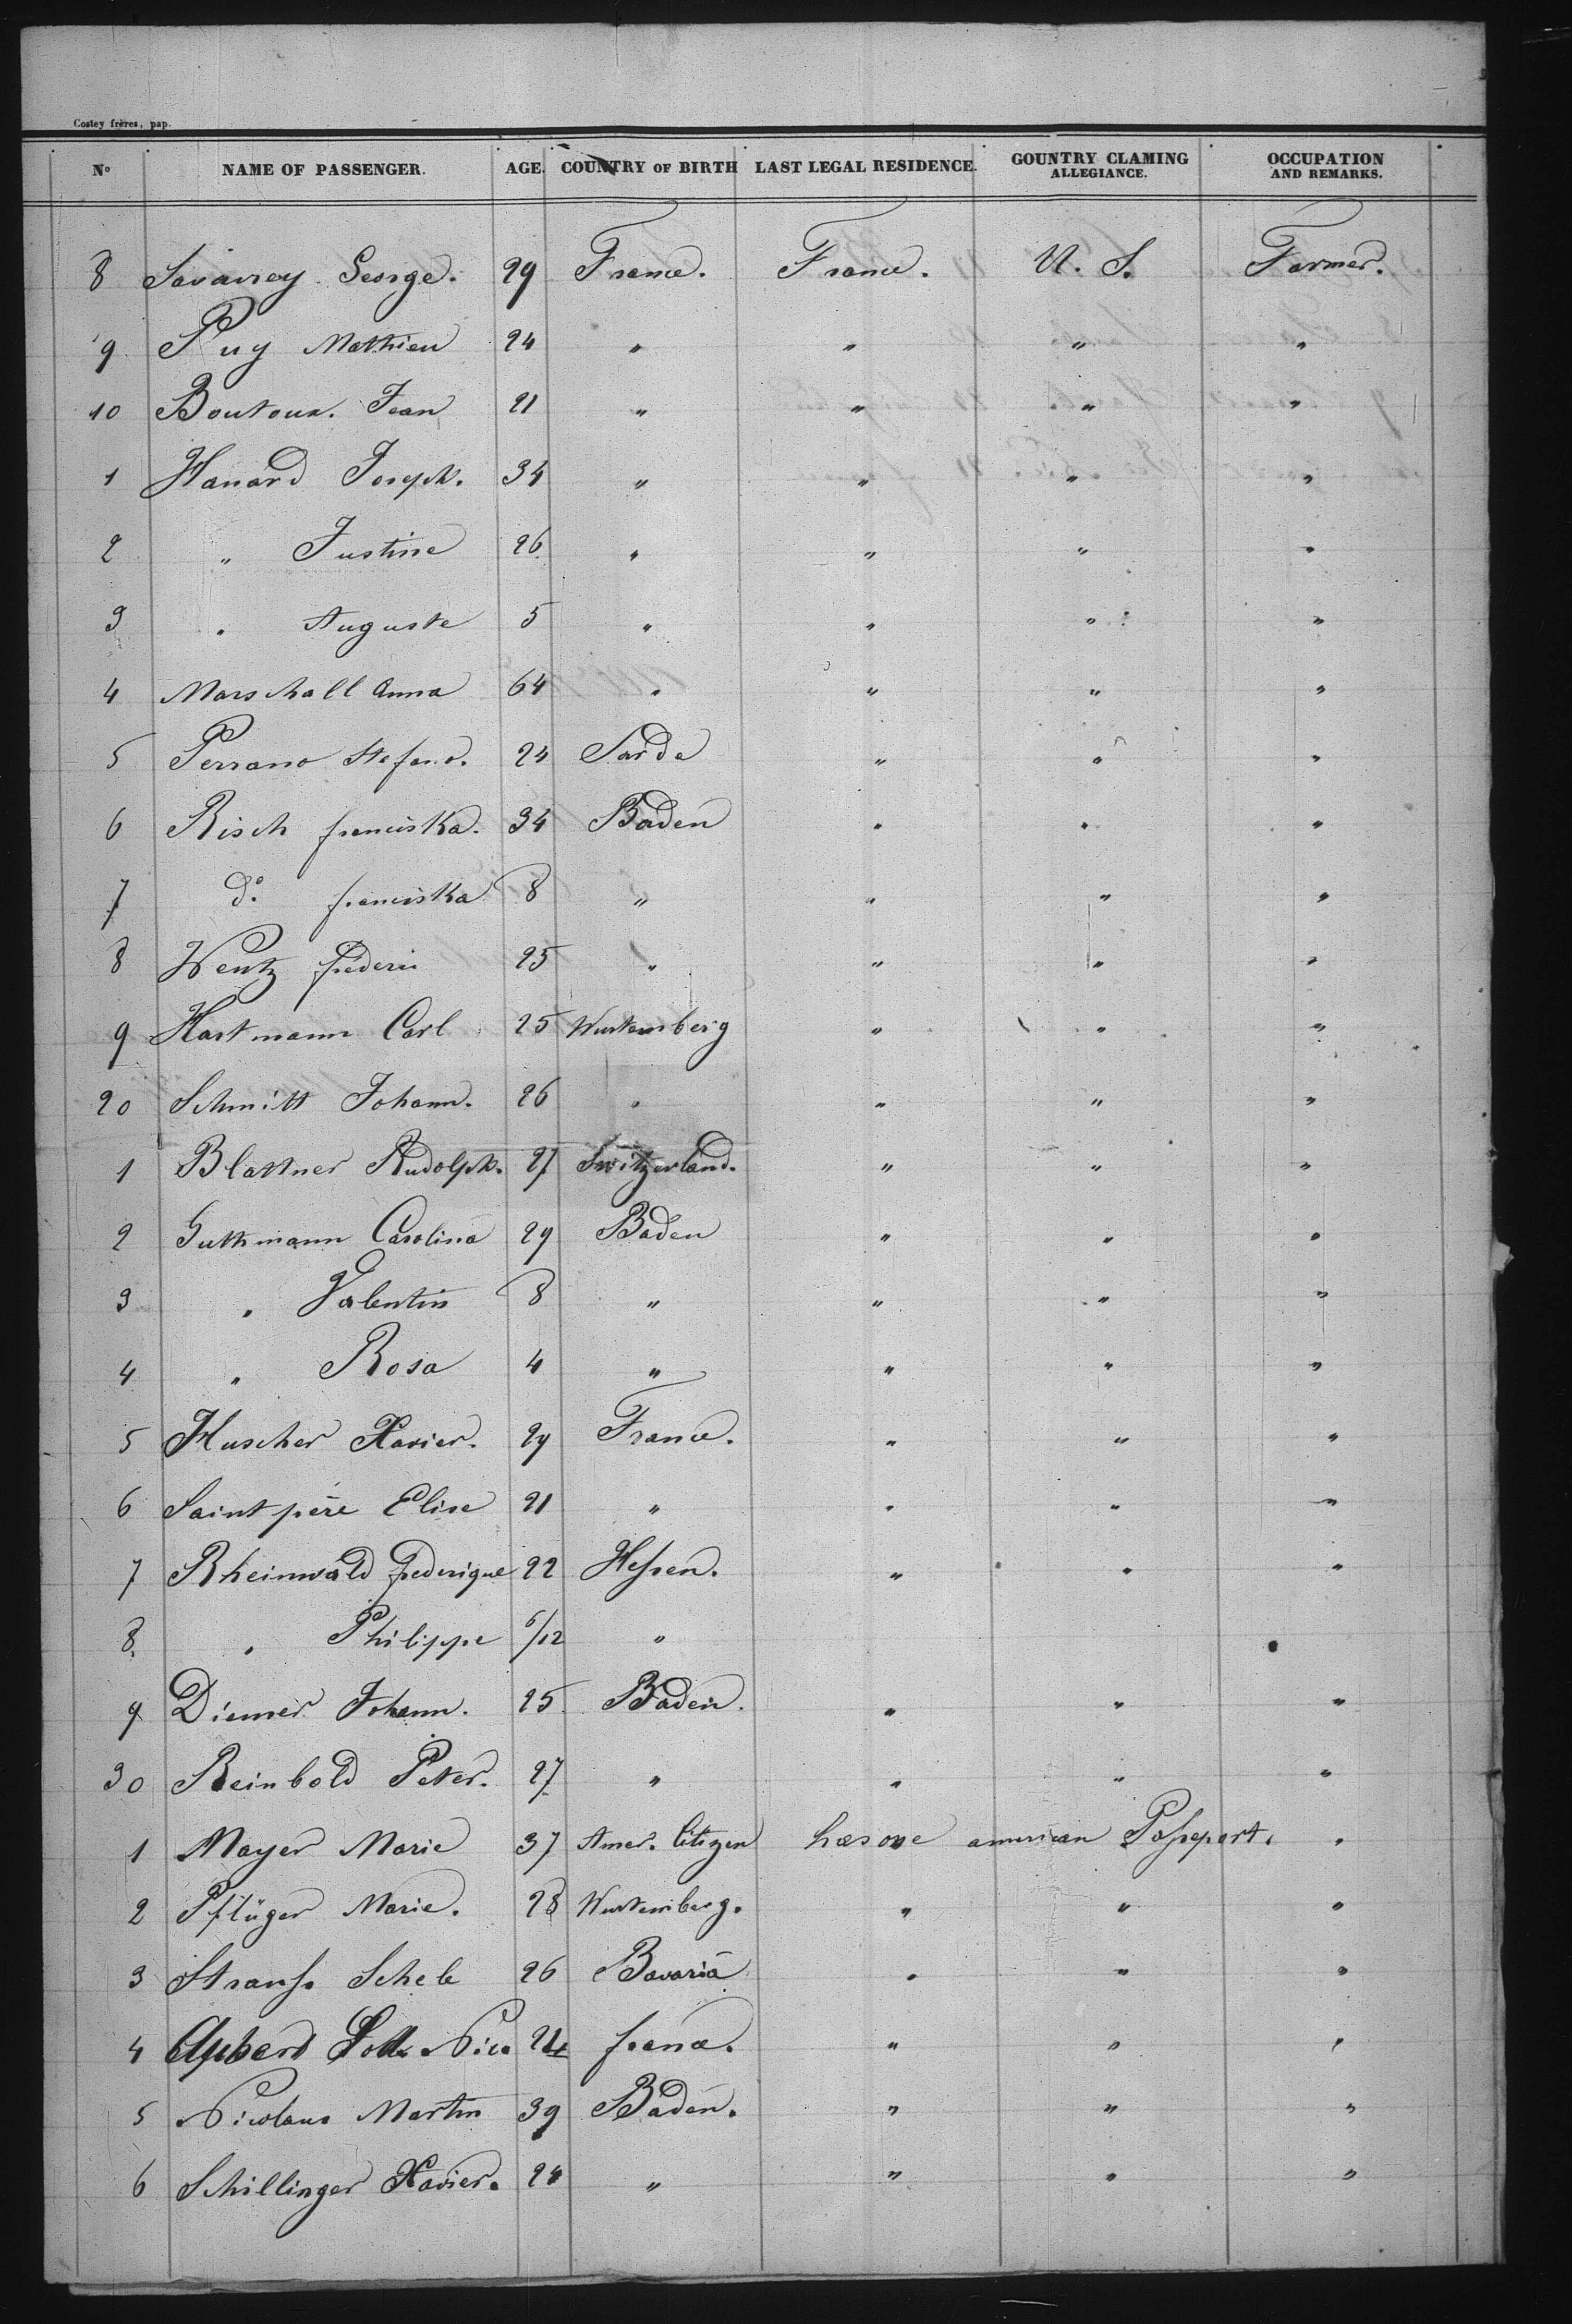 Costey frères, pap.
No NAME OF PASSENGER. AGE. COUNTRY OF BIRTH LAST LEGAL RESIDENCE. COUNTRY CLAMING ALLEGIANCE. OCCUPATION AND REMARKS.
8 George. 29 France. France. U. S. Farmer.
9 Puy Mathieu 24 " " " "
10 Boutoux. Jean 21 " " " "
1 Hanard Joseph. 34 " " " "
2 " Justine 26 " " " "
3 " Auguste 5 " " " "
4 Marschall Anna 64 " " " "
5 Perrano Stefano. 24 Sarde " " "
6 Risch franciska. 34 Baden " " "
7 do. franciska 8 " " " "
8 Wentz fréderic 25 " " " "
9 Hartmann Carl 25 Wurtemberg " " "
20 Schmitt Johann. 26 " " " "
1 Blattner Rudolph. 27 Switzerland. " " "
2 Guthmann Carolina 29 Baden " " "
3 " Valentin 8 " " " "
4 " Rosa 4 " " " "
5 Huscher Xavier. 29 France. " " "
6 Saintpère Elise 21 " " " "
7 Rheinwald frederique 22 Hessen. " " "
8. " Philippe 6/12 "
9 Diemer Johann. 25 Baden. " " "
30 Reinbold Peter. 27 " " " "
1 Mayer Marie 37 Amer. Citizen has one american Passeport. "
2 Pflüger Marie. 28 Wurtemberg. " " "
3 Strauss Schele 26 Bavaria " " "
4 24 france. " " "
5 Nicolaus Martin 39 Baden. " " "
6 Schillinger Xavier. 24 " " " "